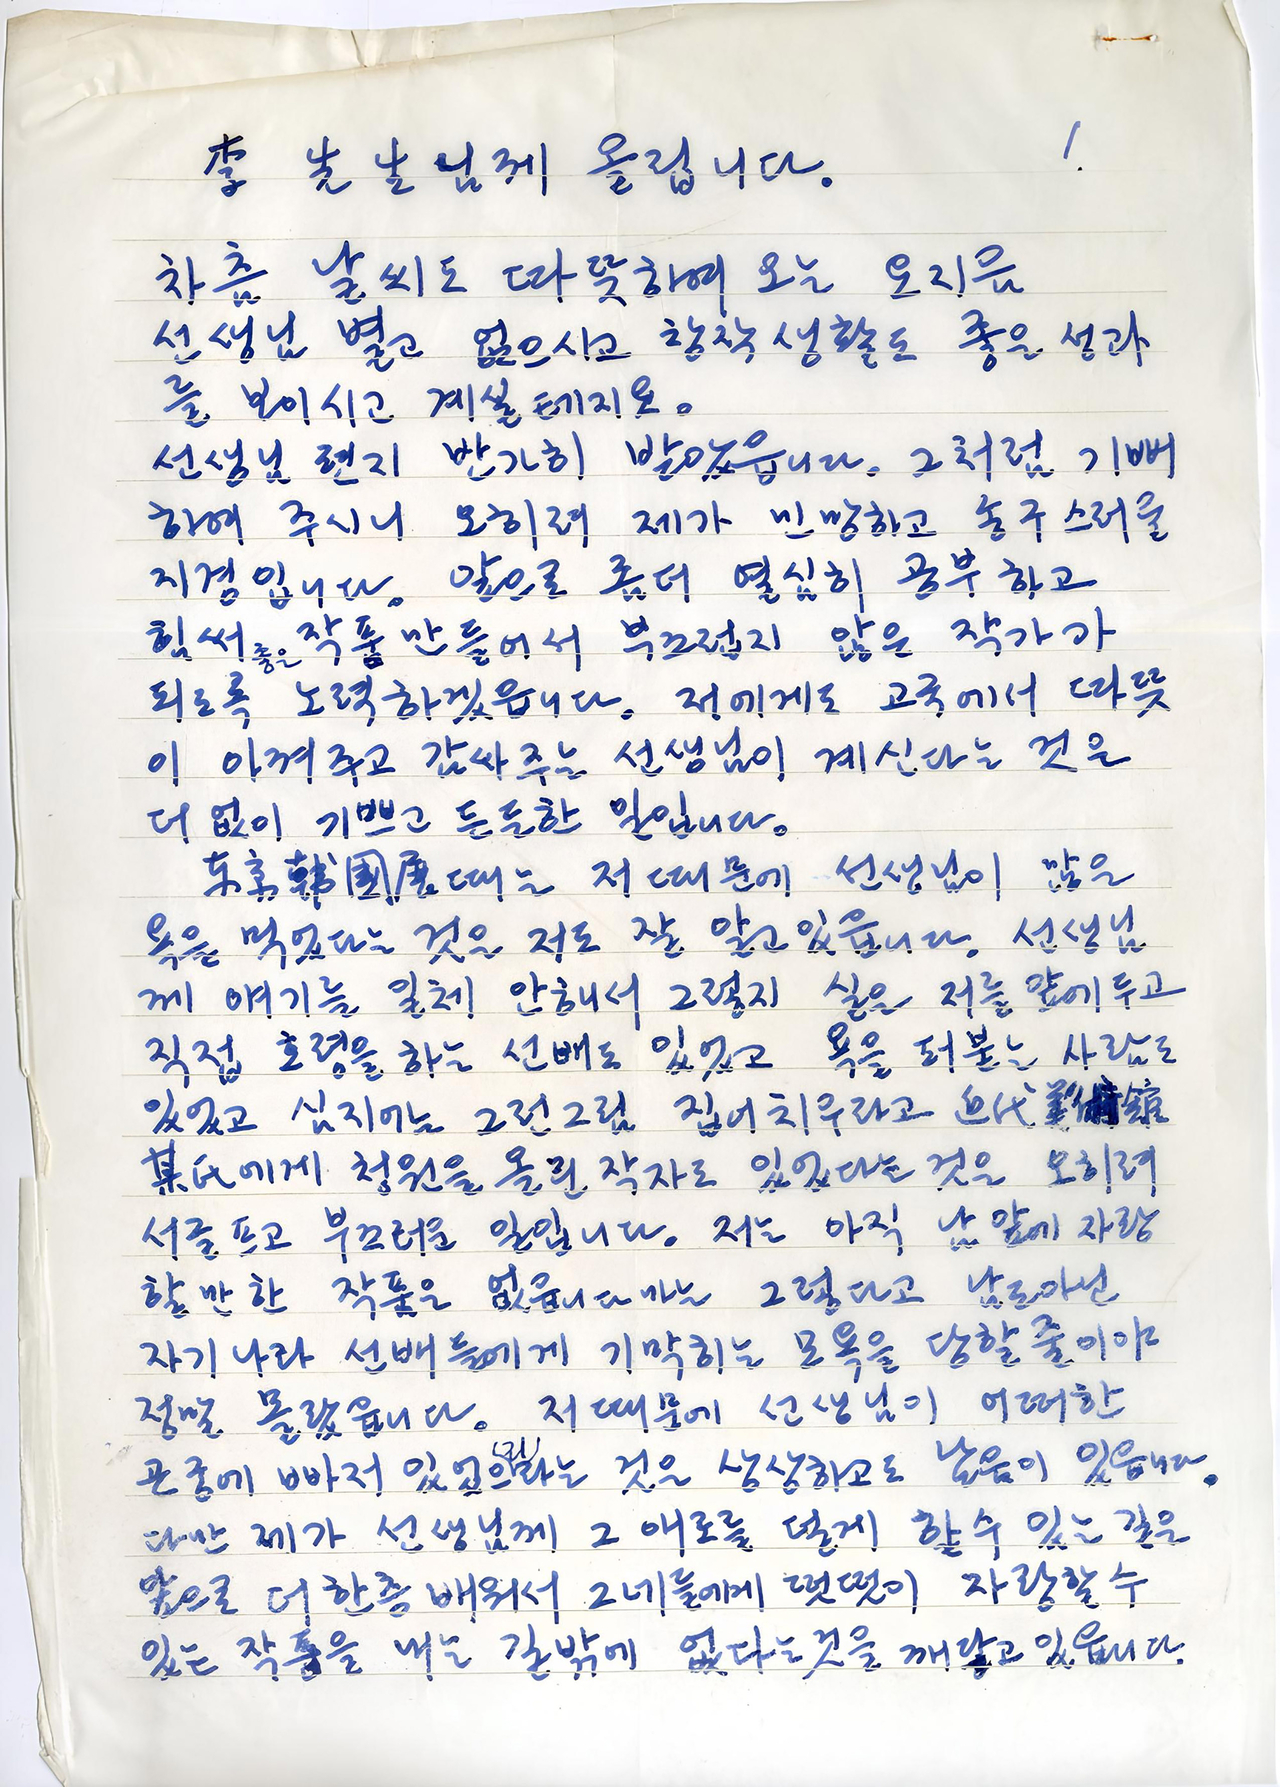 李 先生님께 올립니다. 1.
차츰 날씨도 따뜻하여 오는 요지음
선생님 별고 없으시고 창작생활도 좋은 성과
를 보이시고 계실테지요.
선생님 편지 반가히 받았읍니다. 그처럼 기뻐
하여 주시니 오히려 제가 민망하고 송구스러울
지경입니다. 앞으로 좀더 열심히 공부하고
힘써 좋은 작품 만들어서 부끄럽지 않은 작가가
되도록 노력하겠읍니다. 저에게도 고국에서 따뜻
이 아껴주고 감싸주는 선생님이 계신다는 것은
더없이 기쁘고 든든한 일입니다.
東京韓國展때는 저 때문에 선생님이 많은
욕을 먹었다는 것은 저도 잘 알고 있읍니다. 선생님
께 얘기를 일체 안해서 그렇지 실은 저를 앞에 두고
직접 호령을 하는 선배도 있었고 욕을 퍼붇는 사람도
있었고 심지어는 그런그림 집어치우라고 近代美術館
某氏에게 청원을 올린 작자도 있었다는 것은 오히려
서글프고 부끄러운 일입니다. 저는 아직 남 앞에 자랑
할만한 작품은 없읍니다마는 그렇다고 남도아닌
자기나라 선배들에게 기막히는 모욕을 당할줄이야
정말 몰랐읍니다. 저 때문에 선생님이 어떠한
곤궁에 빠져 있었으리라는 것은 상상하고도 남음이 있읍니다.
다만 제가 선생님께 그 애로를 덜게 할수 있는 길은
앞으로 더한층 배워서 그네들에게 떳떳이 자랑할수
있는 작품을 내는 길밖에 없다는것을 깨닫고 있읍니다.